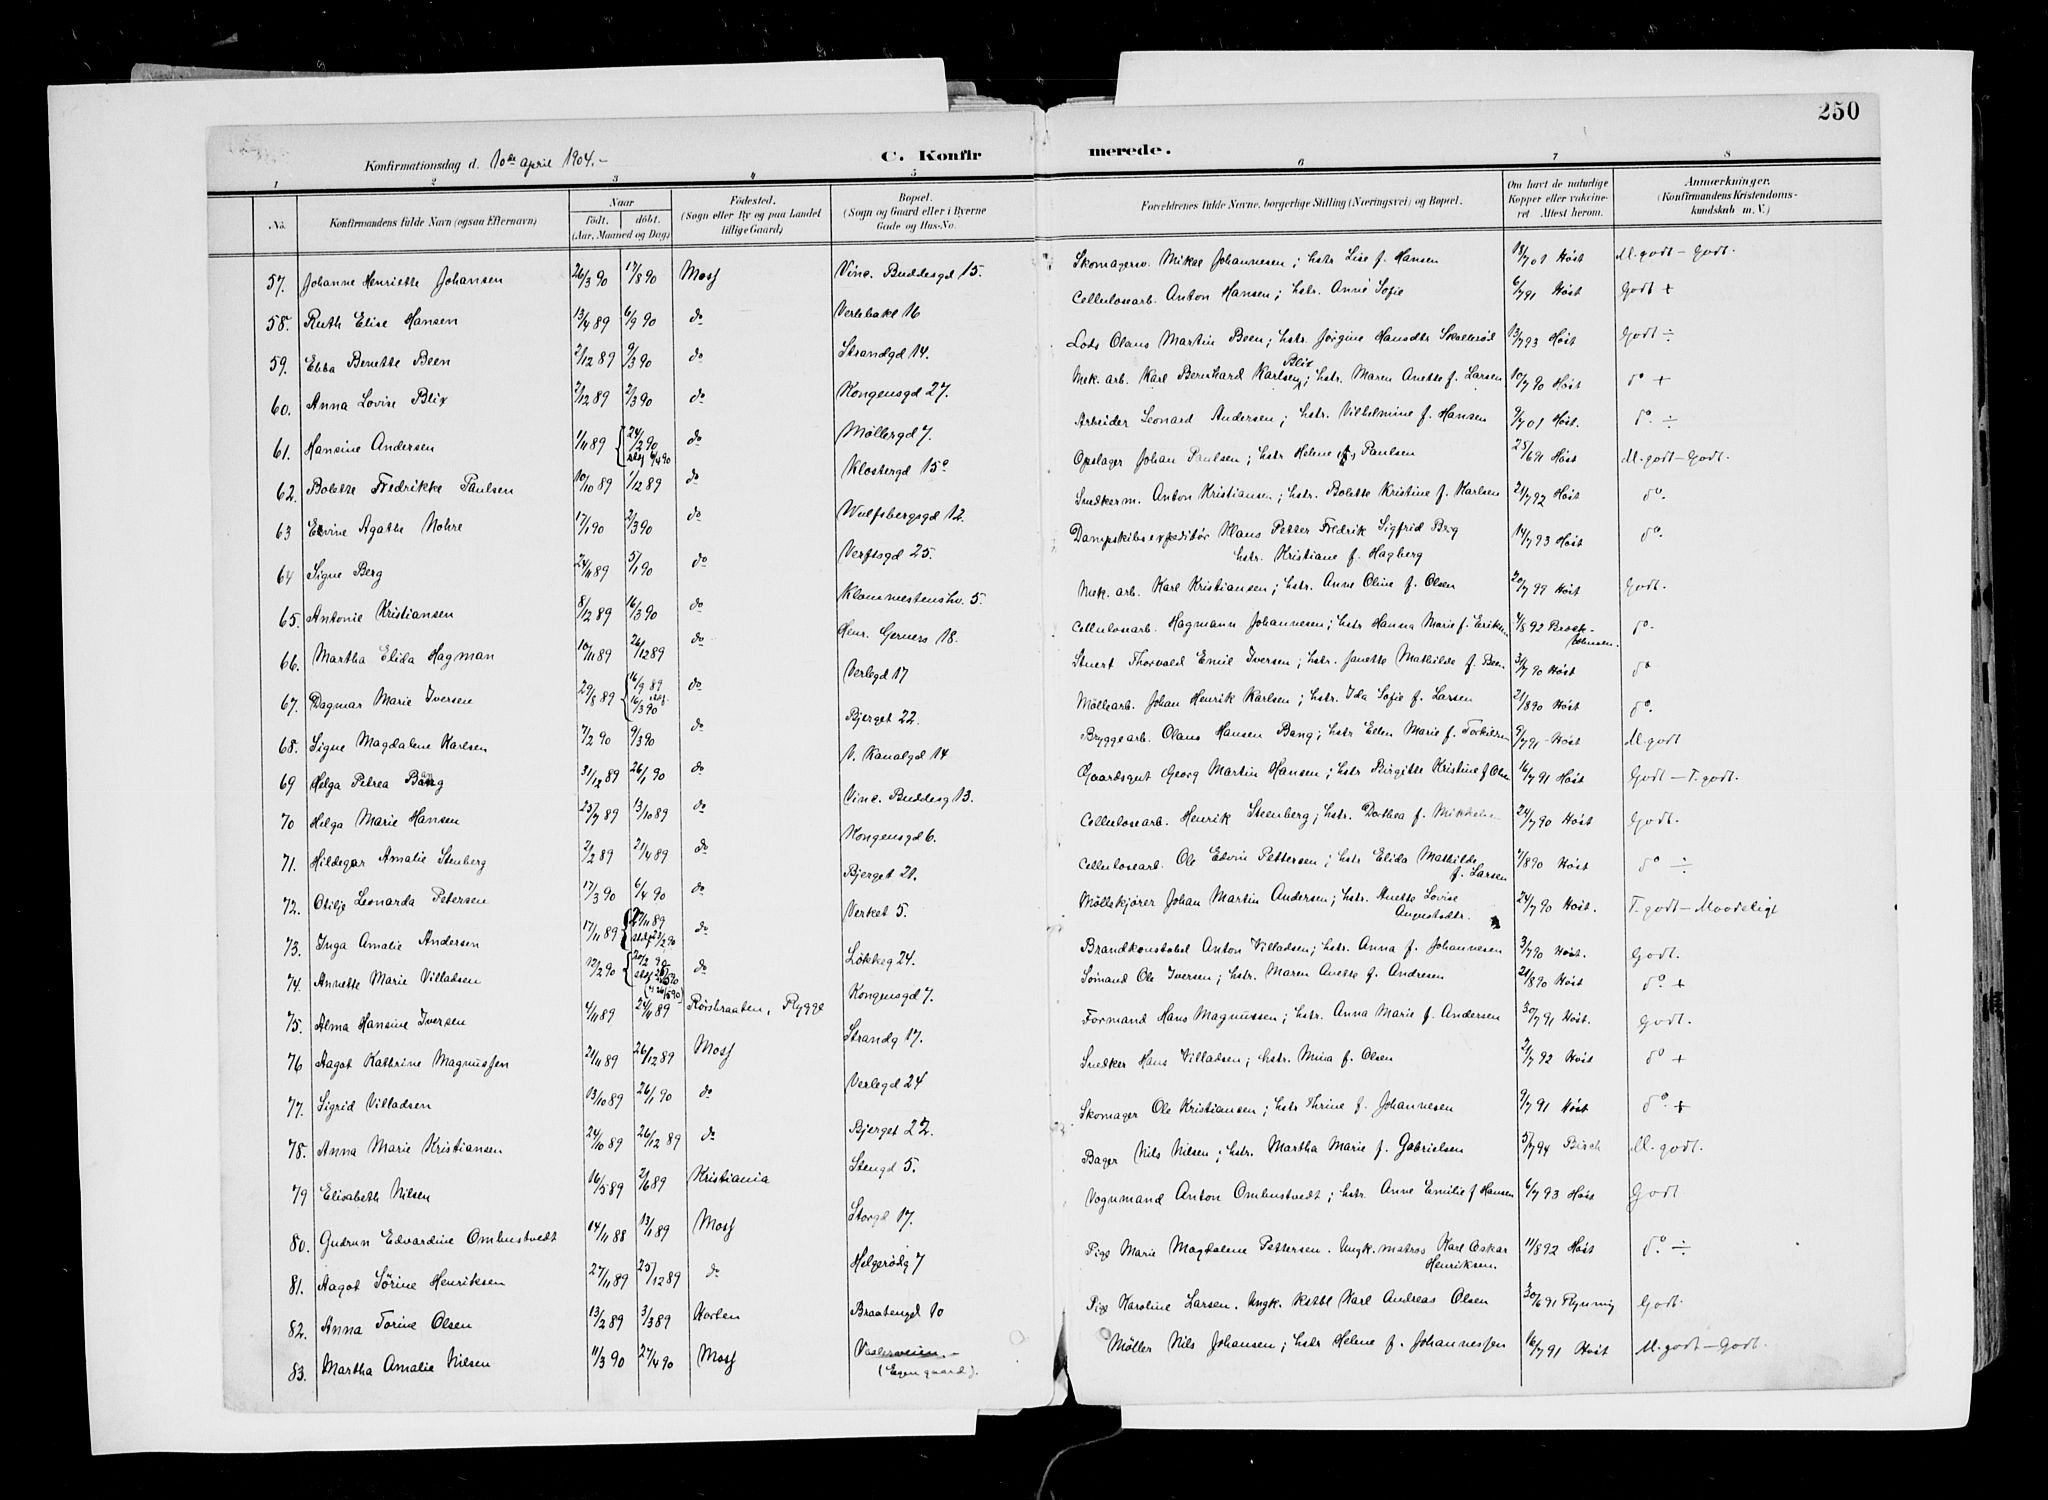 250
Konfirmationsdag d. 10de april 1904.-
C. Konfirmerede.
1 2 3 4 5 6 7 8
No. Konfirmandens fulde Navn (ogsaa Efternavn) Naar födt. döbt. (Aar, Maaned og Dag) Födested. (Sogn eller By og paa Landet tillige Gaard) Bopæl. (Sogn og Gaard eller i Byerne Gade og Hus-No. Forældrenes fulde Navne, borgerlige Stilling (Næringsvei) og Bopæl. Om havt de naturlige Kopper eller vakcineret Attest herom. Anmærkninger. (Konfirmandens Kristendomskundskab m. V.)
57. Johanne Henriette Johansen 26/3 90 17/8 90 Moss Vinc. Buddesgd 15. Skomagersv. Mikal Johannesen; hstr Lise f. Hansen 18/7 01 Höst M. godt - Godt.
58. Ruth Elise Hansen 13/4 89 6/9 90 do Verlebakl 16 Cellulosearb. Anton Hansen; hstr. Anne Sofie 6/7 91 Höst Godt +
59. Ebba Benette Been 2/12 89 9/3 90 do Strandgd 14. Lods Olaus Martin Been; hstr. Jørgine Hansdtr 13/7 93 Höst Godt ÷
60. Anna Lovise Blix 2/12 89 2/3 90 do Kongensgd 27. Mek. arb. Karl Bernhard Karlsen Blix; hstr. Maren Anette f. Larsen 10/7 90 Höst do +
61. Hansine Andersen 1/11 89 24/2 90 stsf 6/4 90 do Møllergd 7. Arbeider Leonard Andersen; hstr. Vilhelmine f. Hansen 9/7 01 Höst. do ÷
62. Bolette Fredrikke Paulsen 10/10 89 1/12 89 do Klostergd 15a Opslager Johan Paulsen; hstr Helene f. Paulsen 25/6 91 Höst M. godt - Godt.
63 Edvine Agathe Nohre 17/1 90 2/3 90 do Wulfsbergsgd 12. Snedkerm. Anton Kristiansen; hstr. Bolette Kristine f. Karlsen 21/7 92 Höst do.
64 Signe Berg 24/11 89 5/1 90 do Verftsgd 25. Dampskibsexpeditör Hans Petter Fredrik Sigfrid Berg
hstr. Kristiane f. Hagberg 14/7 93 Höst do.
65. Antonie Kristiansen 8/12 89 16/3 90 do 5. Mek. arb. Karl Kristiansen; hstr. Anne Oline f. Olsen 20/7 99 Höst Godt.
66. Martha Elida Hagman 10/11 89 26/12 89 do Henr. Gerners 18. Cellulosearb. Hagmann Johannesen; hstr Hanna Marie f. Eriksen 4/8 92 do
67. Dagmar Marie Iversen 29/8 89 16/9 89 stsf. 16/3 90 do Verlegd 17 Stuert Thorvald Emil Iversen; hstr. Janette Mathilde f. Been 3/7 90 Höst do
68. Signe Magdalene Karlsen 7/2 90 9/3 90 do Bjerget 22. Møllearb. Johan Henrik Karlsen; hstr. Ida Sofie f. Larsen 21/8 90 Höst do.
69 Helga Petrea Bang 31/12 89 26/1 90 do V. Kanalgd 14 Bryggearb. Olaus Hansen Bang; hstr Ellen Marie f. Torkildsen 9/7 91 - Höst M. godt
70 Helga Marie Hansen 25/7 89 13/10 89 do Vinc. Buddesg 13. Gaardsgut Georg Martin Hansen; hstr Birgitte Kristine f. Olsen 16/7 91 Höst Godt - T. godt.
71. Hildegar Amalie Stenberg 2/2 89 21/4 89 do Kongensgd 6. Cellulosearb. Henrik Steenberg; hstr. Dorthea f. Mikkelsen 24/7 90 Höst Godt.
72. Otilje Leonarda Petersen 17/3 90 6/4 90 do Bjerget 20. Cellulosearb. Ole Edvin Pettersen; hstr Elida Mathilde
f. Larsen 7/8 90 Höst do ÷
73. Inga Amalie Andersen 17/11 89 27/11 89 stsf 23/2 90 do Verket 5. Møllekjører Johan Martin Andersen; hstr. Anette Lovise
Augustsdtr. 24/7 90 Höst. T. godt - Maadeligt
74. Annette Marie Villadsen 12/2 90 20/2 90 stsf (26/5 90) do Løkkeg 24. Brandkonstabel Anton Villadsen; hstr. Anna f. Johannesen 3/7 90 Höst. Godt.
75. Alma Hansine Iversen 4/11 89 24/11 89 Rørsbraaten, Rygge Kongensgd 7. Sømand Ole Iversen; hstr. Maren Anette f. Andresen 21/8 90 Höst do. +
76 Aagot Kathrine Magnussen 21/11 89 26/12 89 Moss Strandg 17. Formand Hans Magnussen; hstr. Anna Marie f. Andersen 30/7 91 Höst. Godt.
77. Sigrid Villadsen 13/10 89 26/1 90 do Verlegd 24 Snedker Hans Villadsen; hstr. Mina f. Olsen 2/7 92 Höst do +
78. Anna Marie Kristiansen 24/10 89 26/12 89 do Bjerget 22. Skomager Ole Kristiansen; hstr Thrine f. Johannesen 9/7 91 Höst do. +
79 Elisabeth Nilsen 16/5 89 2/6 89 Kristiania Stengd 5. Bager Nils Nilsen; hstr. Martha Marie f. Gabrielsen 5/7 94 Birch M. godt.
80. Gudrun Edvardine Ombustvedt 14/11 88 13/1 89 Moss Storgd 17. Vognmand Anton Ombustvedt; hstr. Anne Emilie f Hansen 6/7 93 Höst Godt
81. Aagot Sörine Henriksen 27/11 89 25/12 89 do Helgerödg 7 Pige Marie Magdalene Pettersen. Ungk. matros Karl Oskar
Henriksen. 11/8 92 Höst do. ÷
82. Anna Torine Olsen 13/2 89 3/3 89 Horten Braatengd 10 Pige Karoline Larsen. Ungk. Kstbl Karl Andreas Olsen 30/6 91 Rynnig Godt.
83. Martha Amalie Nilsen 11/3 90 27/4 90 Moss Vaalerveien.-
(Egen gaard). Møller Nils Johansen; hstr Helene f. Johannessen 16/7 91 Höst M. godt - Godt.